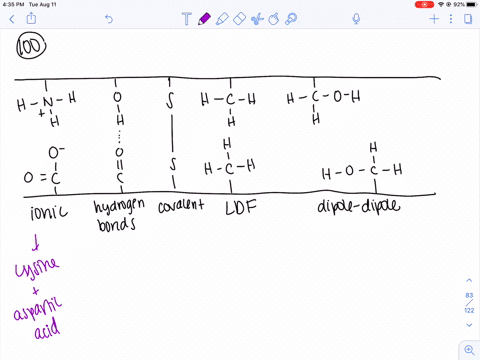 4:35 PM Tue Aug 11
92%
100
H-N-H H
+
O H O C
S S
H-C-H H
H-C-O-H H
O⁻
O=C
H H-C-H
H-O-C-H H
ionic hydrogen bonds covalent LDF dipole-dipole
↓
lysine
+
aspartic
acid
83
/
122